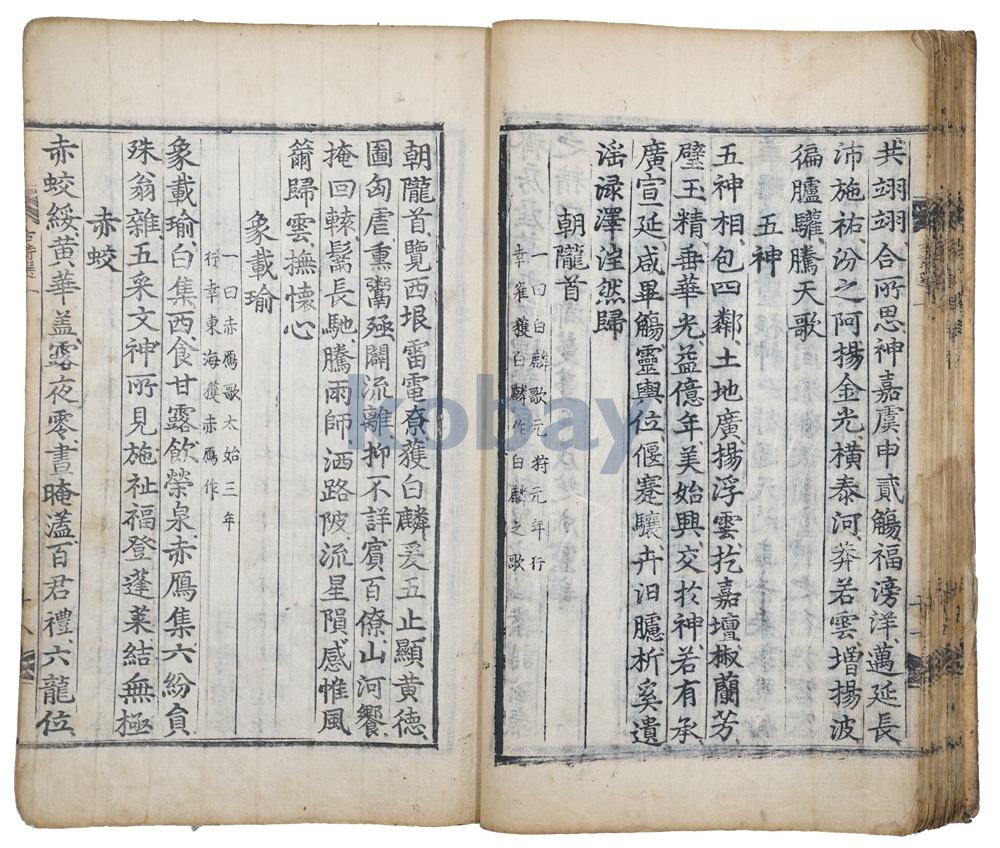 共翊翊、合所思、神嘉虞、申貳觴、福滂洋、邁延長、
沛施祐、汾之阿、揚金光、横泰河、莽若雲、增揚波
徧臚驩、騰天歌
五神
五神相、包四鄰、土地廣、揚浮雲、扢嘉壇、椒蘭芳、
璧玉精、垂華光、益億年、美始興、交扵神、若有承、
廣宣延、咸畢觴、靈輿位、偃蹇驤、卉汨臚、析奚遺
滛渌澤、𣴎然歸
朝隴首
一曰白麟歌元狩元年行
幸雍獲白麟作白麟之歌
朝隴首、覽西垠、雷電尞、獲白麟、爰五止、顯黄德、
圖匈虐、熏鬻殛、闢流離、抑不詳、賓百僚、山河饗、
掩回轅、鬗長馳、騰雨師、洒路陂、流星隕、感惟風
籋歸雲、撫懷心
象載瑜
一曰赤鴈歌太始三年
行幸東海獲赤鴈作
象載瑜、白集西、食甘露、飲榮泉、赤鴈集、六紛員、
殊翁雜、五采文、神所見、施祉福、登蓬萊、結無極
赤蛟
赤蛟綏、黄華盖、露夜零、晝晻濭、百君禮、六龍位、
古詩選
kobay